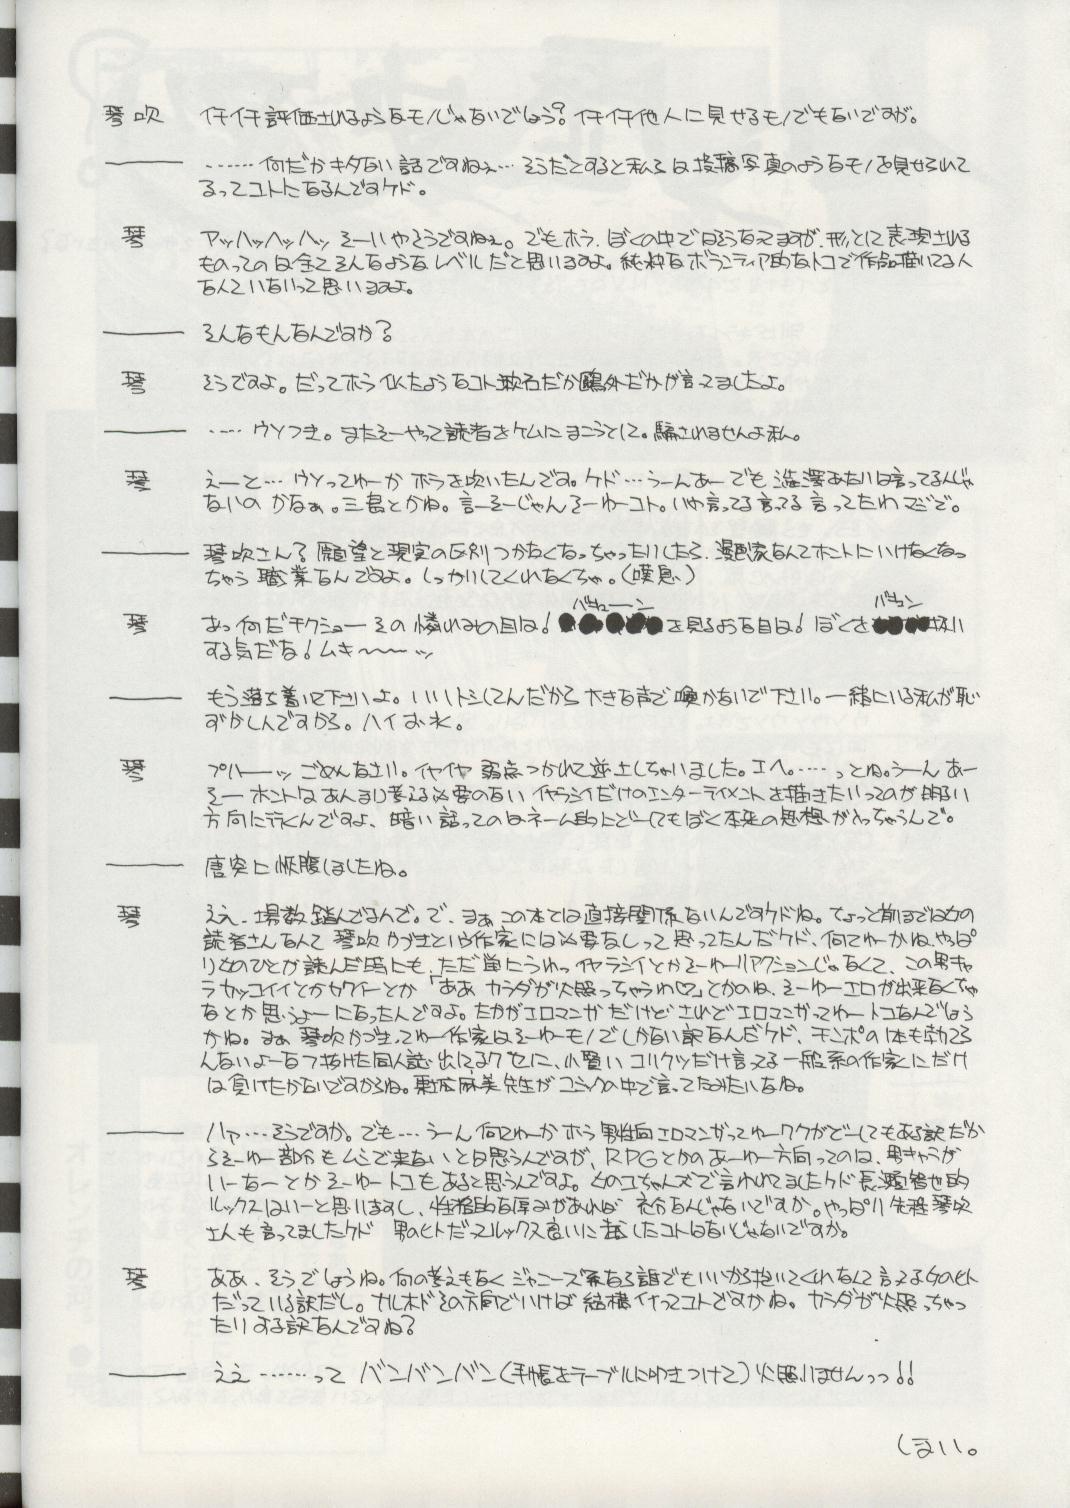 琴吹　イチイチ評価されるようなモノじゃないでしょう?イチイチ他人に見せるモノでもないですが。
――― ……何だかキタない話ですねぇ…そうだとすると私らは投稿写真のようなモノを見せられて
るってコトになるんですケド。
琴　アッハッヘッハッ そーいやそうですねぇ。でもホラ、ぼくの中で日そう言えますが、形として表現される
ものってのは全てそんなようなレベルだと思いますよ。純粋なボランティア的なトコで作品描いてる人
なんていないって思いますよ。
――― そんなもんなんですか?
琴　そうですよ。だってホラ似たようなコト漱石だか鷗外だかが言ってましたよ。
――― ‥‥ウソつき。またそーやって読者をケムにまこうとして。騙されませんよ私。
琴　えーと…ウソってゆーか ホラを吹いたんです。ケド…うーんあー でも 澁澤あたりは言ってるんじゃ
ないの かなぁ。三島とかね。言ーそーじゃんそーゆーコト。いや言ってる言ってる 言ってたわ マジで。
――― 琴吹さんる 願望と現実の区別つかなくなっちゃったりしたら、漫画家なんてホントにいけなくなっ
ちゃう 職業なんですよ。しっかりしてくれなくちゃ。(嘆息)
琴　あっ何だチクショー その憐れみの目は!●●●●●を見るような目は!ぼくを●●●扱い
バキューン　バキュン
する気だな!ムキ〜〜〜ッ
――― もう落ち着いて下さいよ。いいトシしてんだから大きな声で喚かないで下さい。一緒にいる私が恥
ずかしんですから。ハイお水。
琴　プハーッ ごめんなさい。イヤイヤ 弱点つかれて逆上しちゃいました。エヘ。……っとね。うーん あー
そー ホントはあんまり考える必要のない イヤラシイだけのエンターテイメントを描きたいってのが明るい
方向に行くんですよ、暗い話ってのはネーム的にどーしてもぼく本来の思想が入っちゃうんで。
――― 唐突に恢復しましたね。
琴　ええ、場数踏んでるんで。で、まぁこの本では直接関係ないんですケドね。ちょっと前までは女の
読者さんなんて 琴吹かづきという作家には必要なしって思ってたんだケド、何てゆーかね、やっぱ
り女のひとが読んだ時にも、ただ単にうわっイヤラシイとかそーゆーリアクションじゃなくて、この男キャ
ラカッコイイとかカワイーとか「ああ カラダが火照っちゃうわ♡」とかのね、そーゆーエロが出来なくちゃ
なとか思うよーになったんですよ。たかがエロマンガ だけどされどエロマンガってゆートコなんでしょう
かね。まぁ 琴吹かづきってゆー作家はそーゆーモノでしかない訳なんだケド、チンポの1本も勃てら
んないよーなフ抜けた同人誌出してるクセに、小賢いコリクツだけ言ってる一般系の作家にだけ
は負けたかないですからね。東広麻美先生がコミックの中で言ってたみたいなね。
――― ハァ…そうですか。でも…うーん何てゆーかホラ男性向エロマンガってゆーワクがどーしてもある訳だか
らそーゆー部分もムシで来ないと日思うんですが、RPGとかのあーゆー方向ってのは、男キャラが
いーなーとかそーゆートコもあると思うんですよ。女のコちゃんズで言われてましたケド長瀬智也的
ルックスはいーと思いますし、性格的な厚みがあれば 充分なんじゃないですか。やっぱり先程琴吹
さんも言ってましたケド 男のヒトだってルックス良いに越したコトはないじゃないですか。
琴　ああ、そうでしょうね。何の考えもなくジャニーズ系なら誰でもいいから抱いてくれなんて言える女のヒト
だっている訳だし。ナルホドその方向でいけば結構イケるってコトですかね。カラダが火照っちゃっ
たりする訳なんですね?
――― ええ……って バンバンバン(手帳をテーブルに叩きつけて)火照りませんっっ!!
しまい。